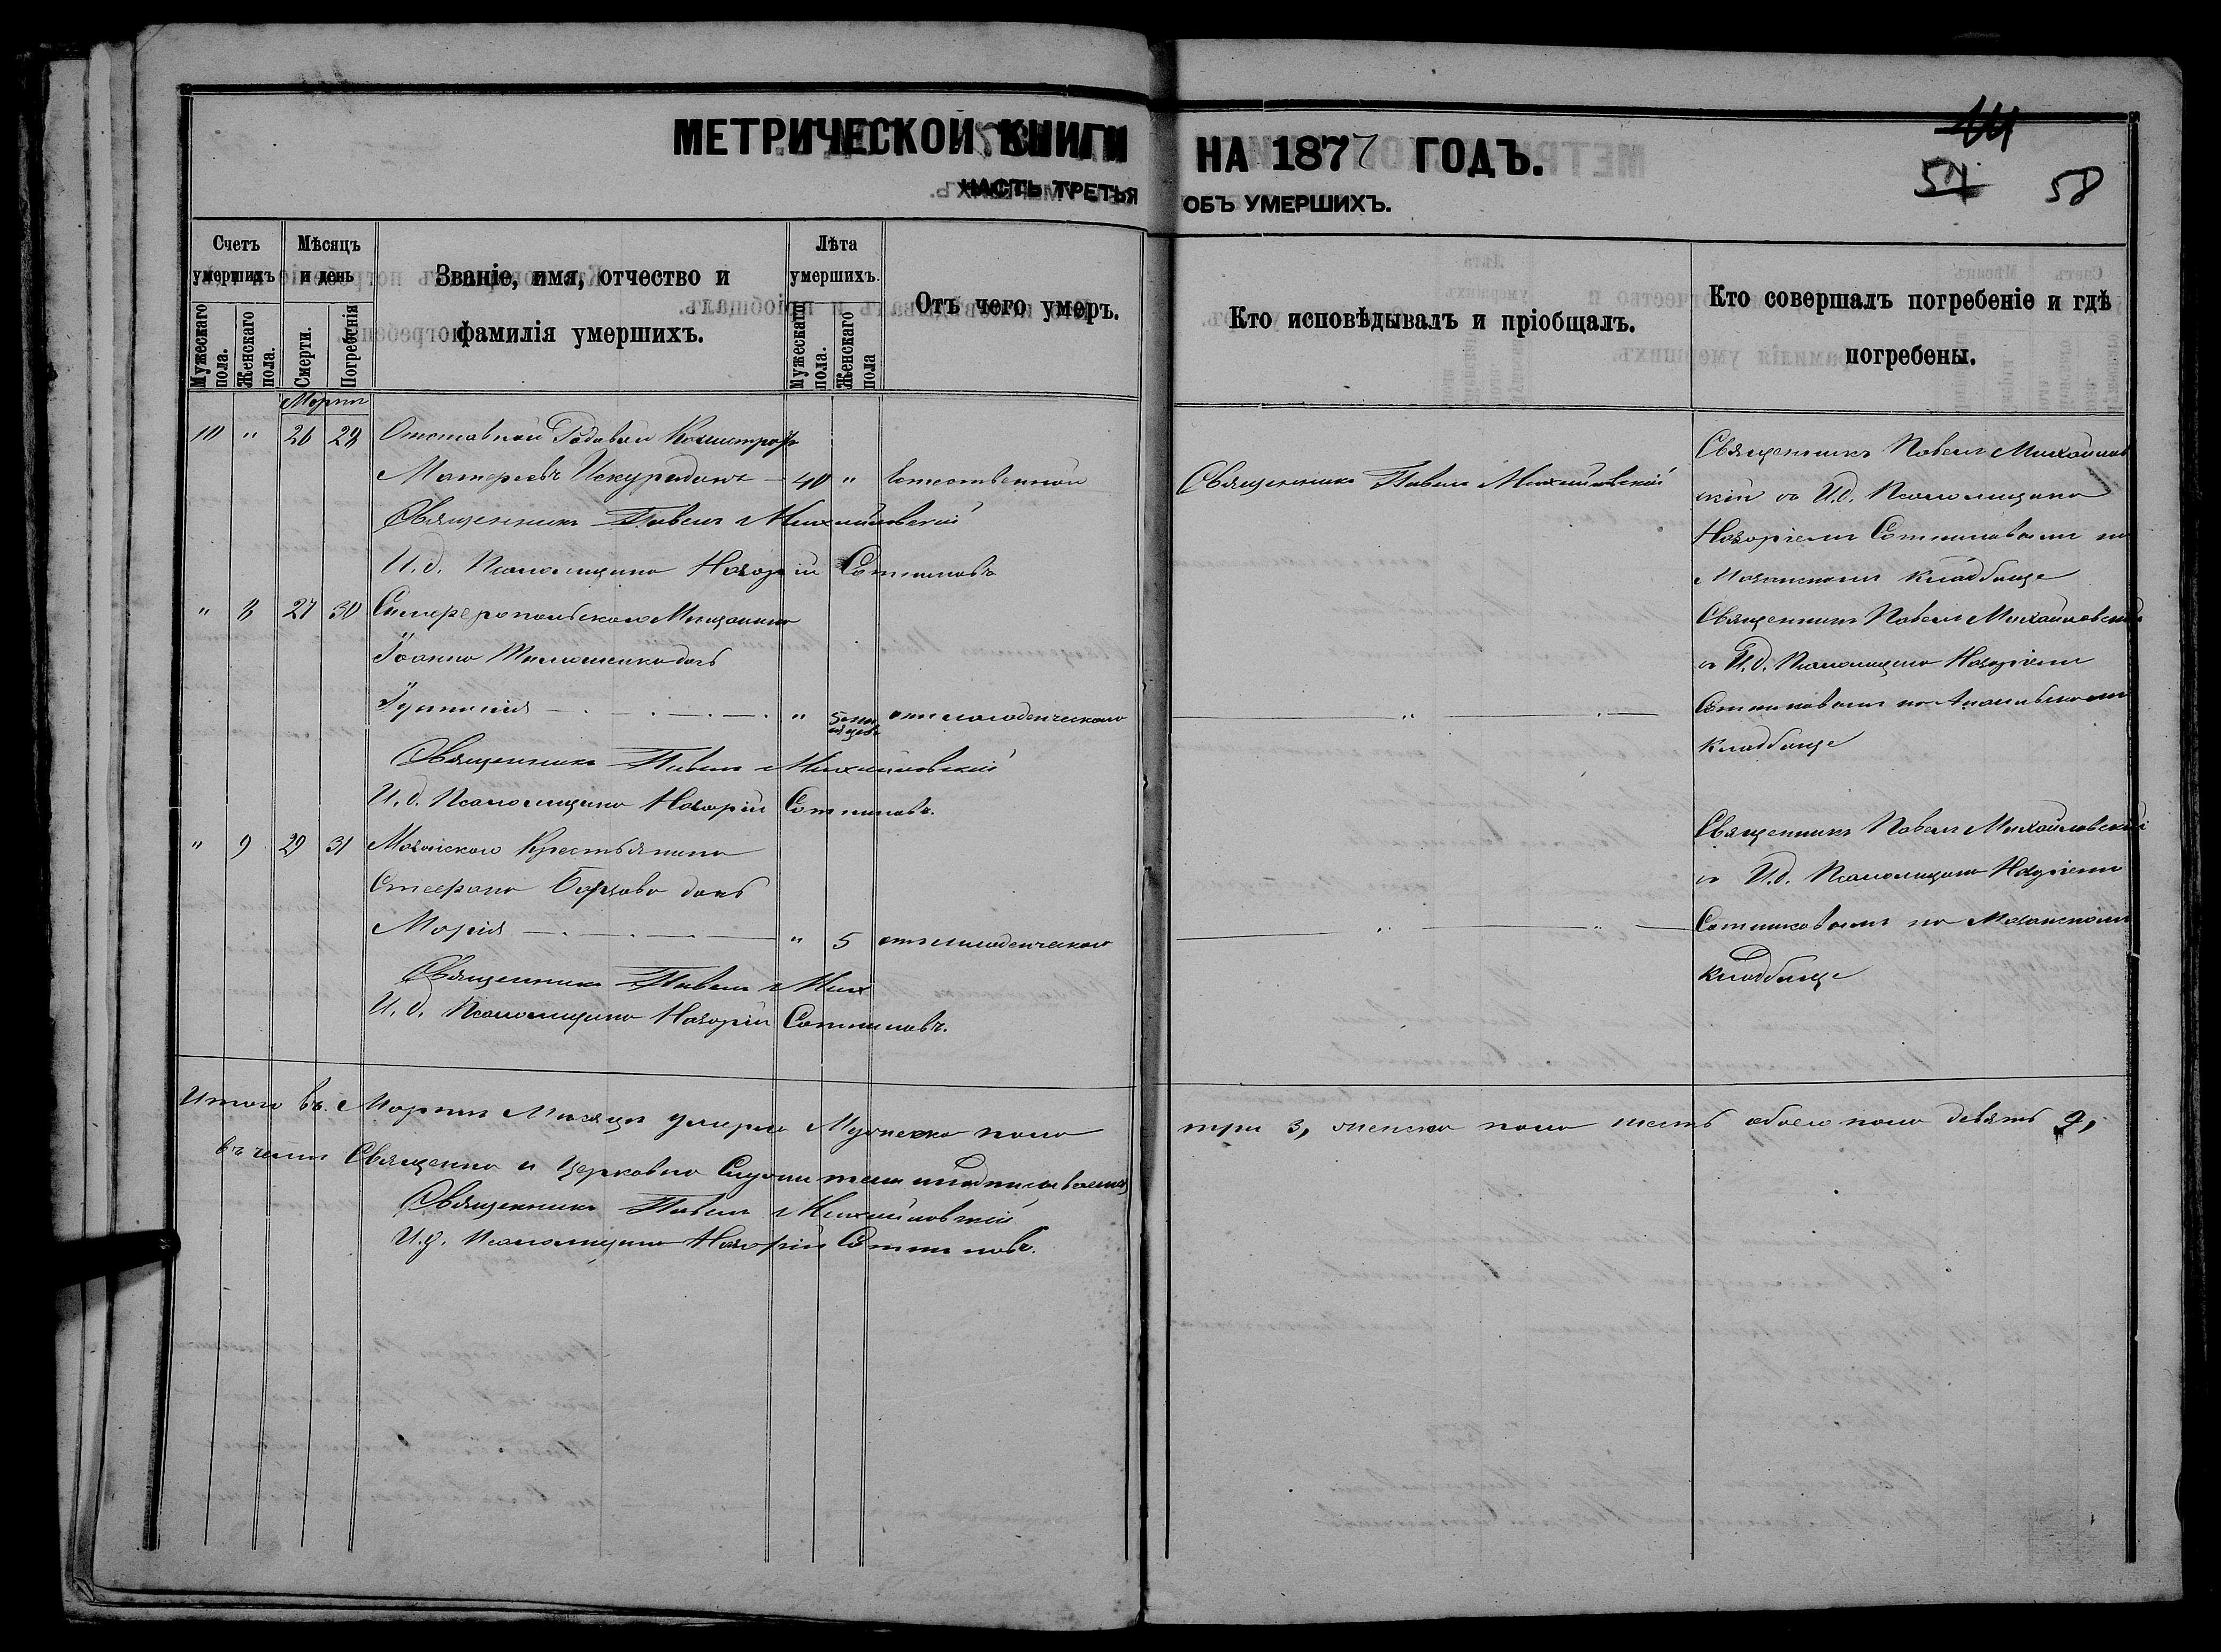 МЕТРИЧЕСКОЙ КНИГИ НА 1877 ГОДЪ.
ЧАСТЬ ТРЕТЬЯ ОБЪ УМЕРШИХЪ.
44
57 58
Счетъ умершихъ
Мѣсяцъ и день
Званіе, имя, отчество и фамилія умершихъ.
Лѣта умершихъ.
Отъ чего умеръ.
Кто исповѣдывалъ и пріобщалъ.
Кто совершалъ погребеніе и гдѣ погребены.
Мужескаго пола.
Женскаго пола.
Смерти.
Погребенія
Мужескаго пола.
Женскаго пола
Мартъ
10 " 26 28 Отставной Рядовой
40 " Естественной Священникъ Павелъ Михайловскій
Священникъ Павелъ Михайловскій
И.д. Псаломщика Назарій Сотниковъ
Священникъ Павелъ Михайлов
скій съ И.д. Псаломщика
Назаріемъ Сотниковымъ на
кладбище
" 8 27 30 Симферопольскаго Мещанина
Іоанна дочь
" 5 отъ младенческаго
Священникъ Павелъ Михайловскій
И.д. Псаломщика Назарій Сотниковъ.
Священникъ Павелъ Михайловскій
съ И.д. Псаломщика Назаріемъ
Сотниковымъ на
кладбище
" 9 29 31 Крестьянина
Стефана дочь
Марія " 5 отъ младенческаго
Священникъ Павелъ Мих
И.д. Псаломщика Назарій Сотниковъ.
Священникъ Павелъ Михайловскій
съ И.д. Псаломщика Назаріемъ
Сотниковымъ на
кладбище
Итого въ Мартѣ Мѣсяцѣ умерло Мужеска пола три 3, женска пола шесть обоего пола девять 9,
въ чемъ Священно и Церковно Служители подписываемся
Священникъ Павелъ Михайловскій
И.д. Псаломщика Назарій Сотниковъ.